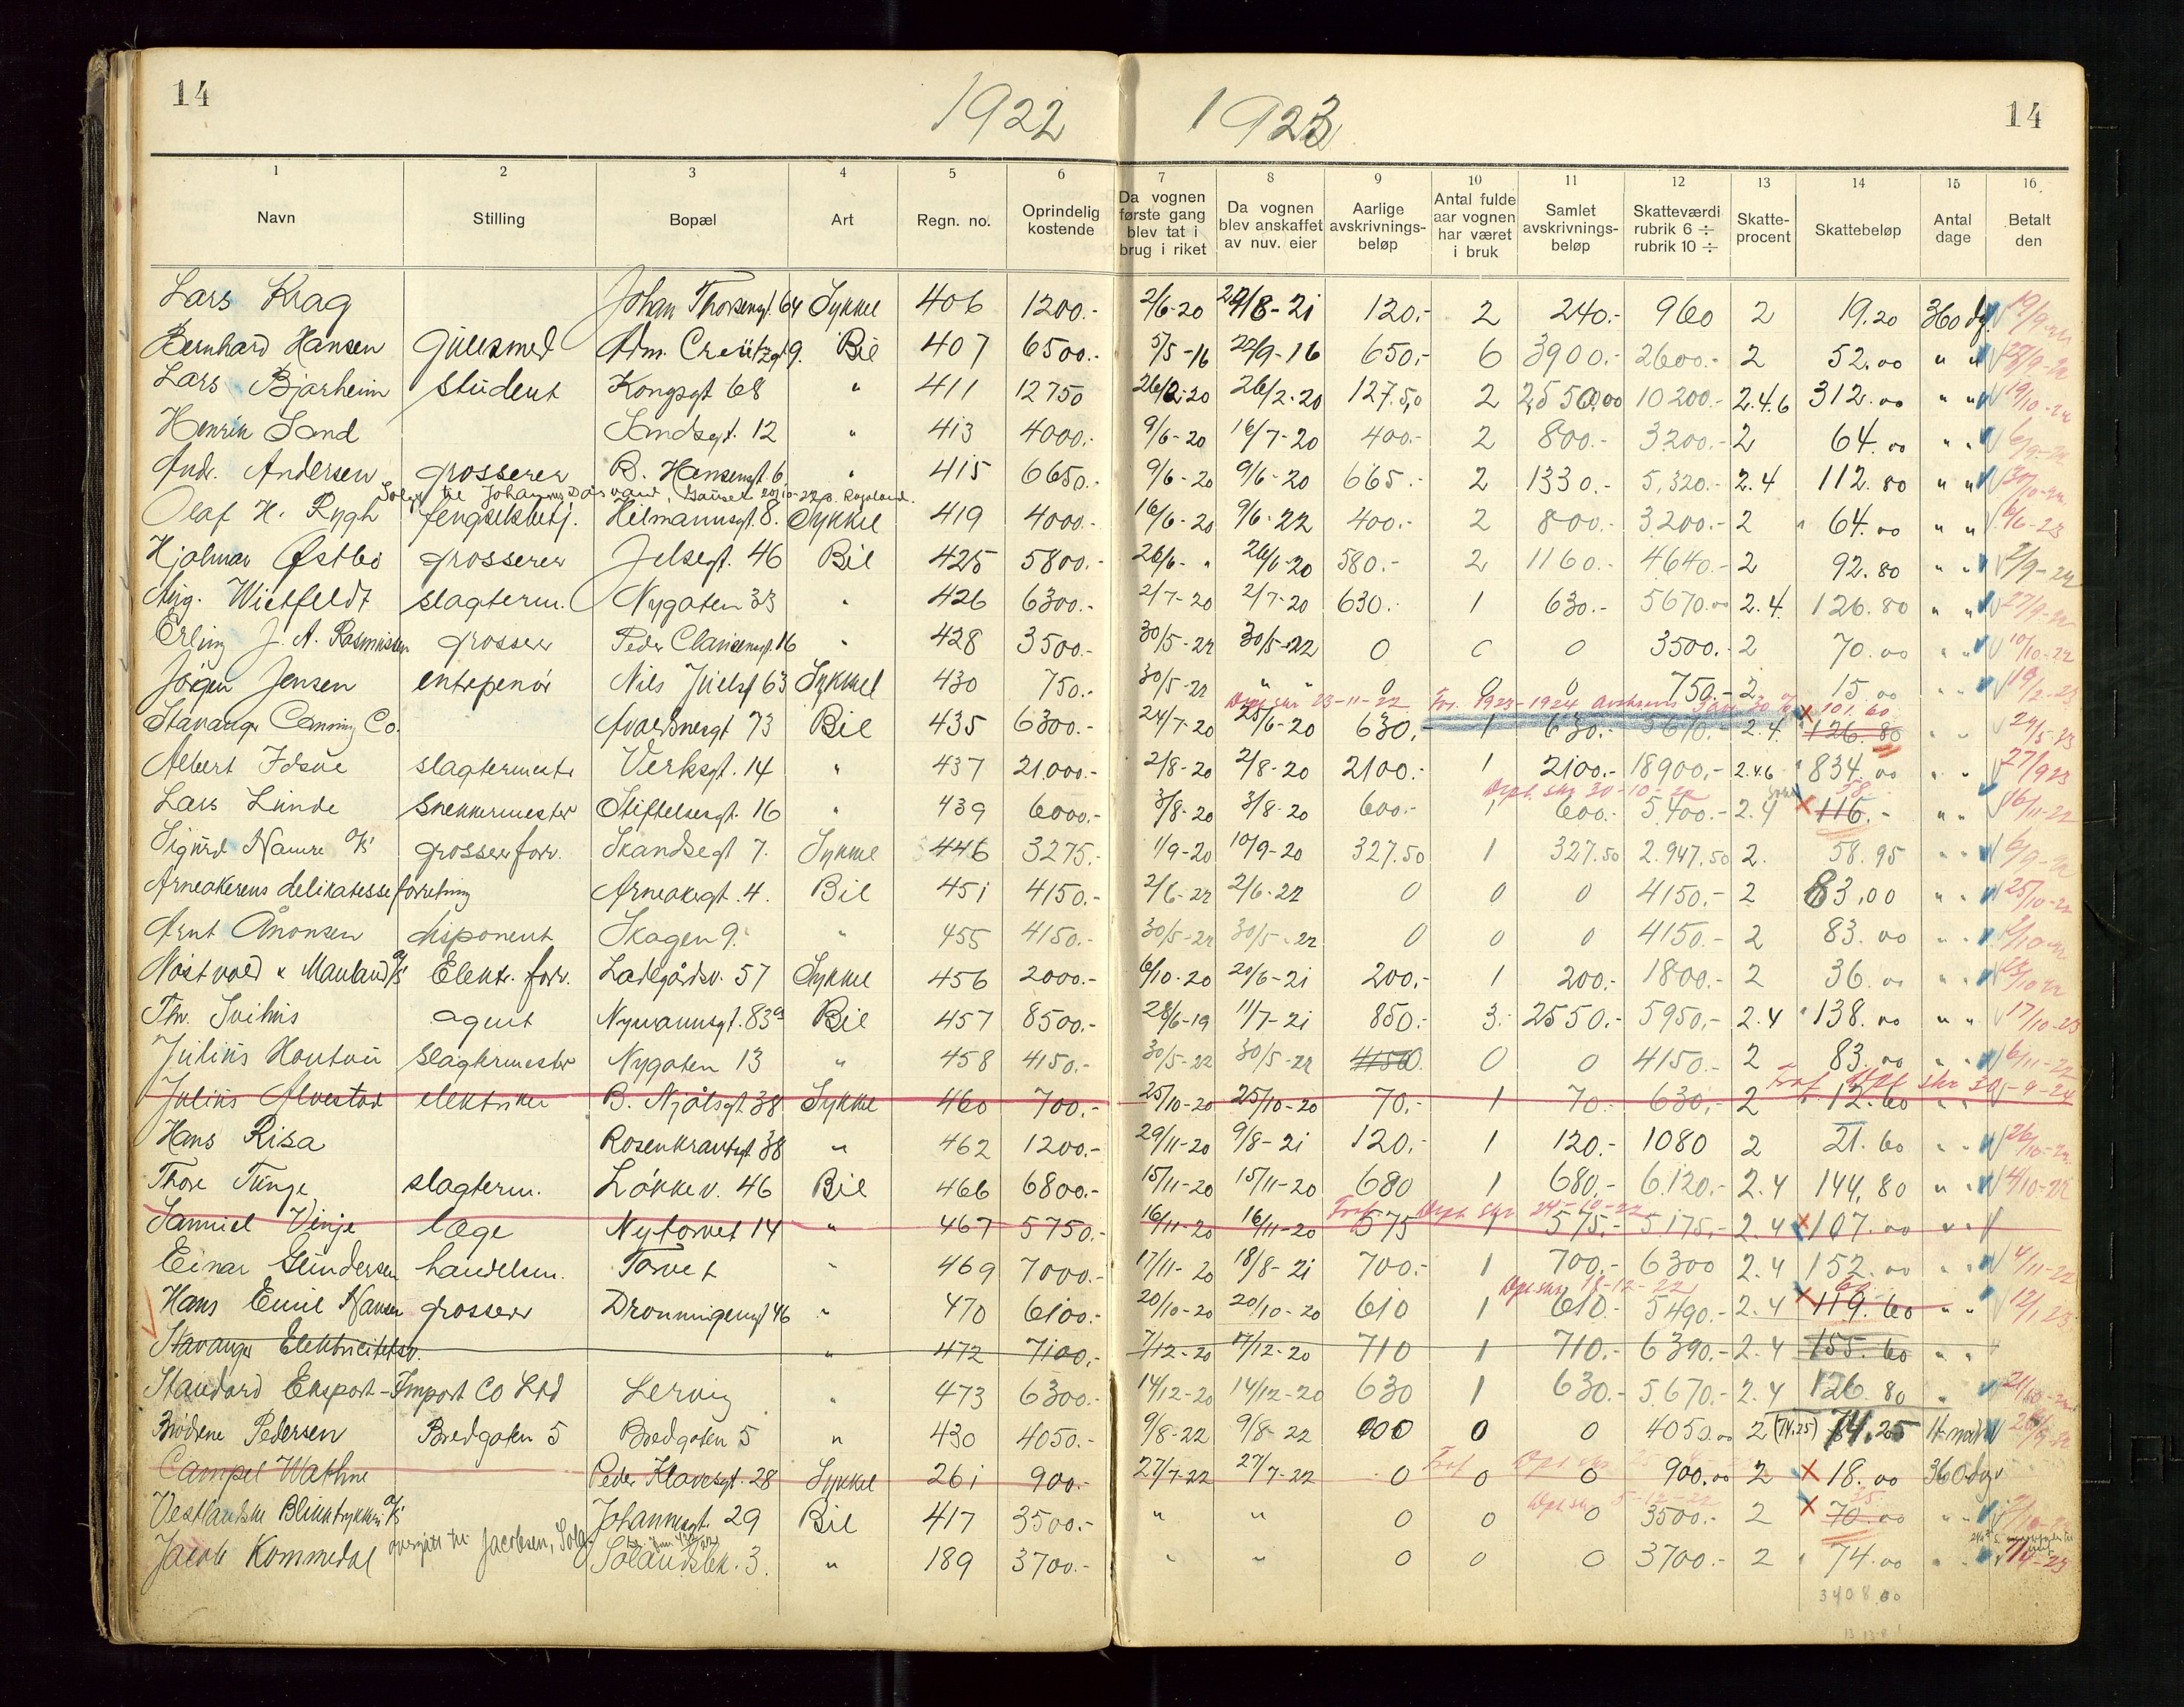 14 1922 1923 14
1 2 3 4 5 6 7 8 9 10 11 12 13 14 15 16
Navn Stilling Bopæl Art Regn. no. Oprindelig kostende Da vognen første gang blev tat i brug i riket Da vognen blev anskaffet av nuv. eier Aarlige avskrivnings-beløp Antal fulde aar vognen har været i bruk Samlet avskrivnings-beløp Skatteværdi rubrik 6 ÷ rubrik 10 ÷ Skatte-procent Skattebeløp Antal dage Betalt den
Lars Krag Johan Thorsensgt. 64 Sykkel 406 1200.- 2/6-20 29/8-21 120.- 2 240.- 960 2 19.20 360 dg
Bernhard Hansen Gullsmed Adm. Creützgt 9. Bil 407 6500.- 5/5-16 22/9-16 650.- 6 3900.- 2600.- 2 52.00 " "
Lars Bjarheim student Kongsgt 68 " 411 12750 26/2-20 26/2-20 127.5,0 2 2,550,00 10200.- 2.4.6 312.00 " " 19/10-22
Henrik Sand Sandsgt. 12 " 413 4000.- 9/6-20 16/7-20 400.- 2 800.- 3200.- 2 64.00 " " 6/9-22
Andr. Andersen grosserer B. Hansensgt. 6 " 415 6650.- 9/6-20 9/6-20 665.- 2 1330.- 5,320.- 2.4 112.80 " " 30/10-22
Solgt til Johannes
Olaf H. Rygh fengselsbetj. Hilmannsgt. 8. Sykkel 419 4000.- 16/6-20 9/6-22 400.- 2 800.- 3200.- 2 64.00 " " 6/6-23
Hjalmar Østbø grosserer Jelsegt. 46 Bil 425 5800.- 26/6- " 26/6-20 580.- 2 1160.- 4640.- 2 92.80 " "
Aug. Wietfeldt slagterm. Nygaten 33 " 426 6300.- 2/7-20 2/7-20 630.- 1 630.- 5670.00 2.4. 126.80 " " 27/9-22
Erling J. A. Rasmussen grosserer Peder Clausensgt. 16 " 428 3500.- 30/5-22 30/5-22 0 0 0 3500.- 2 70.00 " " 10/10-22
Jørgen Jensen entrepenør Nils Juelsgt 63 Sykkel 430 750.- 30/5-22 " " 0 0 0 750.- 2 15.00 " " 19/2-23
Dept skr 23-11-22 For 1923-1924 101.60
Stavanger Canning Co. Avaldsnesgt 73 Bil 435 6300.- 24/7-20 25/6-20 630.- 1 630.- 5670.- 2.4. 126.80 " " 29/5-23
Albert Idsøe slagtermester Verksgt. 14 " 437 21000.- 2/8-20 2/8-20 2100.- 1 2100.- 18900.- 2.4.6 834.00 " " 27/923
Dept. skr 30-10-22 58.
Lars Lunde Snekkermester Stiftelsesgt. 16 " 439 6000.- 3/8-20 3/8-20 600.- 1 600.- 5.400.- 2.4 116.- " " 16/11-22
Sigurd Næmre A/S grosserforr. Skandsegt 7. Sykkel 446 3275.- 1/9-20 10/9-20 327.50 1 327.50 2.947.50 2. 58.95 " " 6/9-22
Arneakerens delikatesseforretning Arneakergt. 4. Bil 451 4150.- 2/6-22 2/6-22 0 0 0 4150.- 2 83.00 " " 25/10-22
Arnt Ånonsen disponent Skagen 9. " 455 4150.- 30/5-22 30/5-22 0 0 0 4150.- 2 83.00 " "
Nøstvold & Mauland A/S Elektr. forr. Ladegårdsv. 57 Sykkel 456 2000.- 6/10-20 20/6-21 200.- 1 200.- 1800.- 2 36.00 " "
Thv. Svihus agent Nymannsgt. 83a Bil 457 8500.- 28/6-19 11/7-21 850.- 3.- 2550.- 5950.- 2.4 138.00 " " 17/10-23
Julius Hontvū slagtermester Nygaten 13 " 458 4150.- 30/5-22 30/5-22 0 0 4150.- 2 83.00 " " 6/11-22
Fraf Dept skr 30-9-24
Julius Alvestad elektriker B. Njålsgt. 38 Sykkel 460 700.- 25/10-20 25/10-20 70.- 1 70.- 630.- 2 12.60 " "
Hans Risa Rosenkrantzgt. 38 " 462 1200.- 29/11-20 9/8-21 120.- 1 120.- 1080 2 21.60 " " 26/10-22
Thore Tunge slagterm. Løkkev. 46 Bil 466 6800.- 15/11-20 15/11-20 680 1 680.- 6.120.- 2.4 144,80 " " 4/10-22
Fraf Dept skr 24-10-22
Samuel Vinje læge Nytorvet 14 " 467 5750.- 16/11-20 16/11-20 575 1 575.- 5175.- 2.4 107.00 " "
Einar Gundersen handelsm. Torvet " 469 7000.- 17/11-20 18/8-21 700.- 1 700.- 6300 2.4 152.00 " " 4/11-22
Dpt skr 18-12-22
Hans Emil Nansen grosserer Dronningensgt 46 " 470 6100.- 20/10-20 20/10-20 610 1 610.- 5490.- 2.4 119.60 " " 12/1.23
Stavanger Elektricitetsv. " 472 7100.- 7/12-20 7/12-20 710 1 710.- 6390.- 2.4 155.60 " "
Standard Eksport-Import Co Ltd Lervig " 473 6300.- 14/12-20 14/12-20 630 1 630.- 5.670.- 2.4 126.80 "
Brødrene Pedersen Bredgaten 5 Bredgaten 5 " 430 4050.- 9/8-22 9/8-22 000 0 0 4050.00 2 (74.25) 74.25 11 mnd
Fraf Dpt skr
Campel Wathne Peder Klowsgt. 28 Sykkel 261 900.- 27/7-22 27/7-22 0 0 0 900.00 2 18.00 360 dg
Dpt skr 5-12-22 35.
Vestlandske Blikktrykkeri A/S Johannesgt. 29 Bil 417 3500.- " " 0 0 0 3500.- 2 70.00 " "
overgått til Jacobsen,
Jacob Kommedal Solandsbk. 3. " 189 3700.- " " 0 0 0 3700.- 2 74.00 " " 7/4-23
3408.00